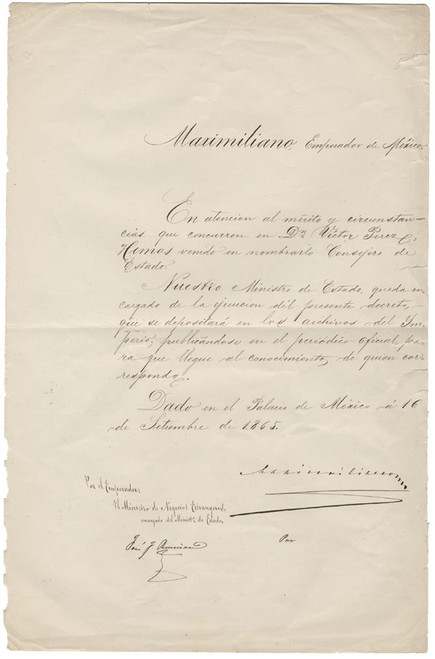 Maximiliano, Emperador de México,
En atencion al mérito y circunstan-
cias que concurren en Dn Victor Perez,
Hemos venido en nombrarlo Consejero de
Estado.
Nuestro Ministro de Estado, queda en-
cargado de la ejecucion del presente decreto,
que se depositará en los archivos del Im-
perio; publicándose en el periódico oficial, pa-
ra que llegue al conocimiento, de quien cor-
responda.
Dado en el Palacio de México á 16
de Setiembre de 1865.
Maximiliano
Por el Emperador
El Ministro de Negocios Extrangeros,
encargado del Ministo de Estado
José F. Ramirez